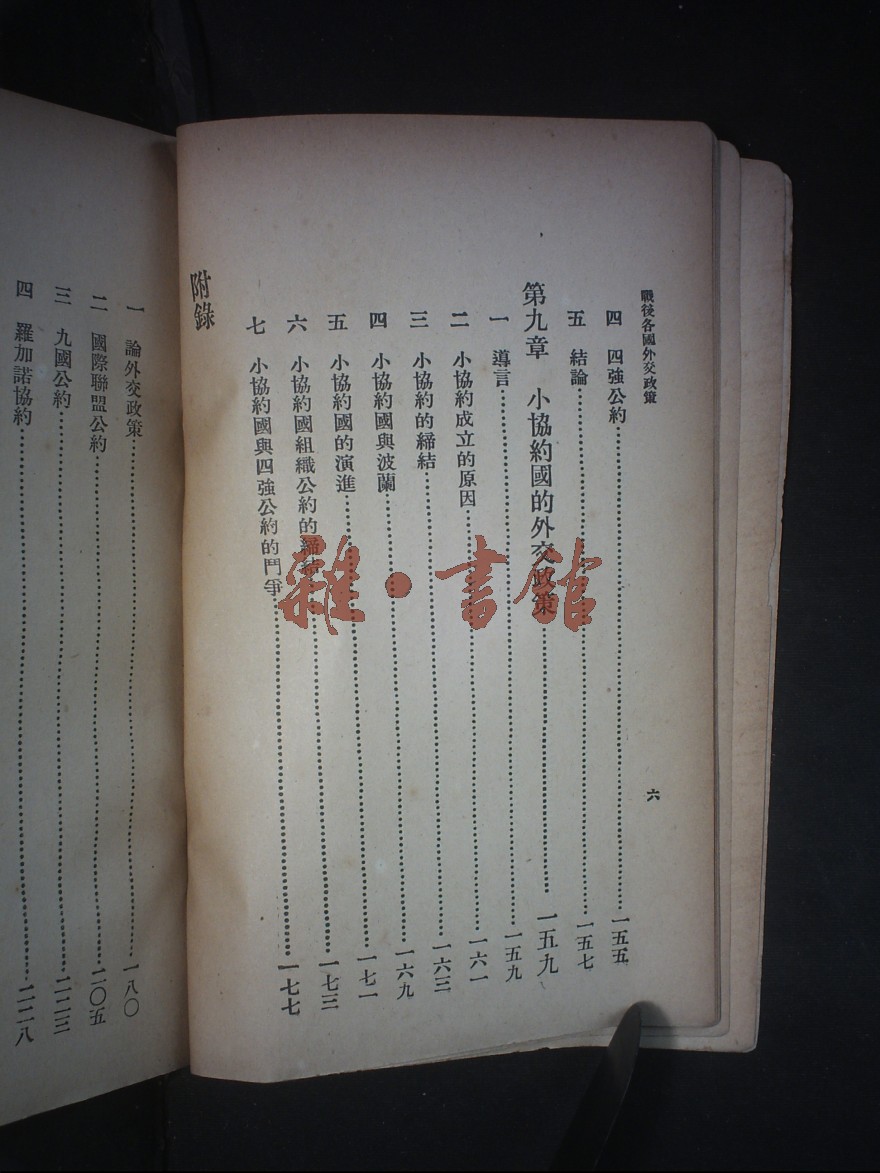 戰後各國外交政策
六
四 四強公約……一五五
五 結論……一五七
第九章 小協約國的外交政策……一五九
一 導言……一五九
二 小協約成立的原因……一六一
三 小協約的締結……一六三
四 小協約國與波蘭……一六九
五 小協約國的演進……一七一
六 小協約國組織公約的締結……一七三
七 小協約國與四強公約的鬥爭……一七七
附錄
一 論外交政策……一八〇
二 國際聯盟公約……二〇五
三 九國公約……二二三
四 羅加諾協約……二二八
雜·書館